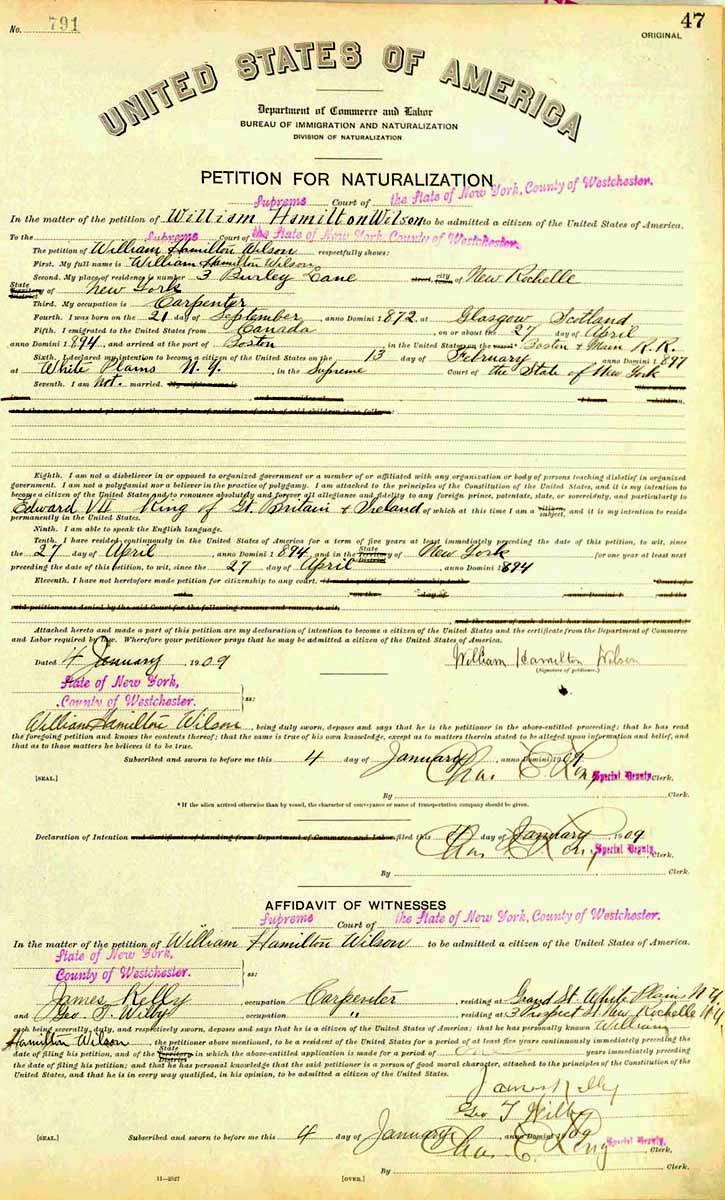 No. 791
47
ORIGINAL
UNITED STATES OF AMERICA
Department of Commerce and Labor
BUREAU OF IMMIGRATION AND NATURALIZATION
DIVISION OF NATURALIZATION
PETITION FOR NATURALIZATION
Supreme Court of the State of New York, County of Westchester.
In the matter of the petition of William Hamilton Wilson to be admitted a citizen of the United States of America.
To the Supreme Court of the State of New York, County of Westchester.
The petition of William Hamilton Wilson respectfully shows:
First. My full name is William Hamilton Wilson
Second. My place of residence is number 3 Burley Lane street, city of New Rochelle
State Territory District of New York
Third. My occupation is Carpenter
Fourth. I was born on the 21 day of September, anno Domini 1872, at Glasgow Scotland
Fifth. I emigrated to the United States from Canada, on or about the 27 day of April
anno Domini 1894, and arrived at the port of Boston, in the United States on the vessel* Boston & Main R.R.
Sixth. I declared my intention to become a citizen of the United States on the 13 day of February, anno Domini 1897
at White Plains N.Y., in the Supreme Court of the State of New York
Seventh. I am not married. My wife's name is She was born
in and resides at I have children,
and the name, date and place of birth, and place of residence of each of said children is as follows:
Eighth. I am not a disbeliever in or opposed to organized government or a member of or affiliated with any organization or body of persons teaching disbelief in organized
government. I am not a polygamist nor a believer in the practice of polygamy. I am attached to the principles of the Constitution of the United States, and it is my intention to
become a citizen of the United States and to renounce absolutely and forever all allegiance and fidelity to any foreign prince, potentate, state, or sovereignty, and particularly to
Edward VII King of Gt. Britain & Ireland of which at this time I am a citizen subject, and it is my intention to reside
permanently in the United States.
Ninth. I am able to speak the English language.
Tenth. I have resided continuously in the United States for a term of five years at least immediately preceding the date of this petition, to wit, since
the 27 day of April, anno Domini 1894, and in the State Territory District of New York for one year at least next
preceding the date of this petition, to wit, since the 27 day of April, anno Domini 1894
Eleventh. I have not heretofore made petition for citizenship to any court. I made petition for citizenship to the Court of
at the on the day of anno Domini 1 and the
said petition was denied by the said Court for the following reasons and causes, to wit,
and the cause of such denial has since been cured or removed.
Attached hereto and made a part of this petition are my declaration of intention to become a citizen of the United States and the certificate from the Department of Commerce
and Labor required by law. Wherefore your petitioner prays that he may be admitted a citizen of the United States.
Dated 4 January 1909
William Hamilton Wilson
(Signature of petitioner.)
State of New York,
County of Westchester. ss:
William Hamilton Wilson, being duly sworn, deposes and says that he is the petitioner in the above-entitled proceeding; that he has read
the foregoing petition and knows the contents thereof; that the same is true of his own knowledge, except as to matters therein stated to be alleged upon information and belief, and
that as to those matters he believes it to be true.
Subscribed and sworn to before me this 4 day of January, anno Domini 1909
[SEAL.]
Special Deputy Clerk.
By Clerk.
* If the alien arrived otherwise than by vessel, the character of conveyance or name of transportation company should be given.
Declaration of Intention and Certificate of Landing from Department of Commerce and Labor filed this 4 day of January 1909
Special Deputy, Clerk.
By Clerk.
AFFIDAVIT OF WITNESSES
Supreme Court of the State of New York, County of Westchester.
In the matter of the petition of William Hamilton Wilson to be admitted a citizen of the United States of America.
State of New York,
County of Westchester. ss:
James Kelly, occupation Carpenter, residing at Grand St. White Plains N.Y.
and Geo. T. Wilby, occupation ", residing at 3 Prospect St. New Rochelle N.Y.
each being severally, duly, and respectively sworn, deposes and says that he is a citizen of the United States of America; that he has personally known William
Hamilton Wilson, the petitioner above mentioned, to be a resident of the United States for a period of at least five years continuously immediately preceding the
date of filing his petition, and of the State Territory District in which the above-entitled application is made for a period of years immediately preceding
the date of filing his petition; and that he has personal knowledge that the said petitioner is a person of good moral character, attached to the principles of the Constitution of the
United States, and that he is in every way qualified, in his opinion, to be admitted a citizen of the United States.
James Kelly
Geo T Wilby
Subscribed and sworn to before me this 4 day of January, anno Domini 1909
[SEAL.]
Special Deputy, Clerk.
By Clerk.
11-2527
[OVER.]